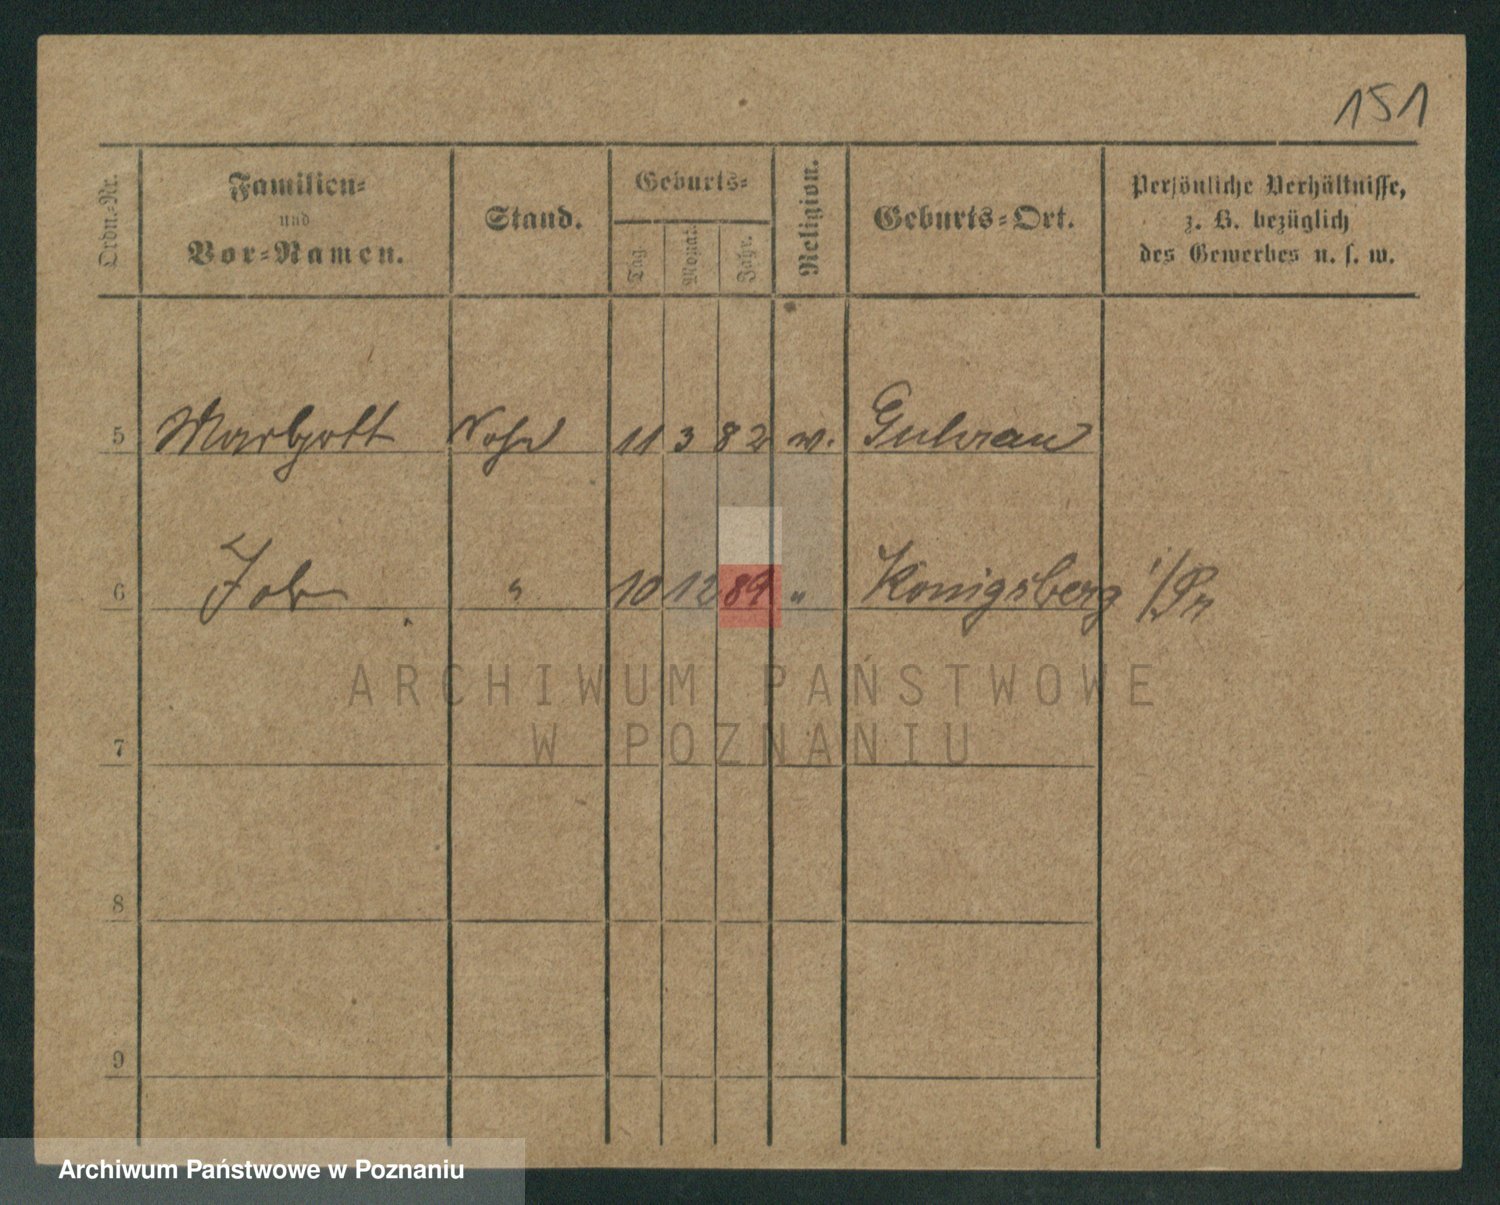 151
Ordn.-Nr.
Familien-
und
Vor-Namen.
Stand.
Geburts-
Tag
Monat
Jahr.
Religion.
Geburts-Ort.
Persönliche Verhältnisse,
z. B. bezüglich
des Gewerbes u. s. w.
5 11 3 82 Guhrau
6 Job " 10 12 89 " Königsberg i/Pr
7
8
9
ARCHIWUM PAŃSTWOWE
W POZNANIU
Archiwum Państwowe w Poznaniu